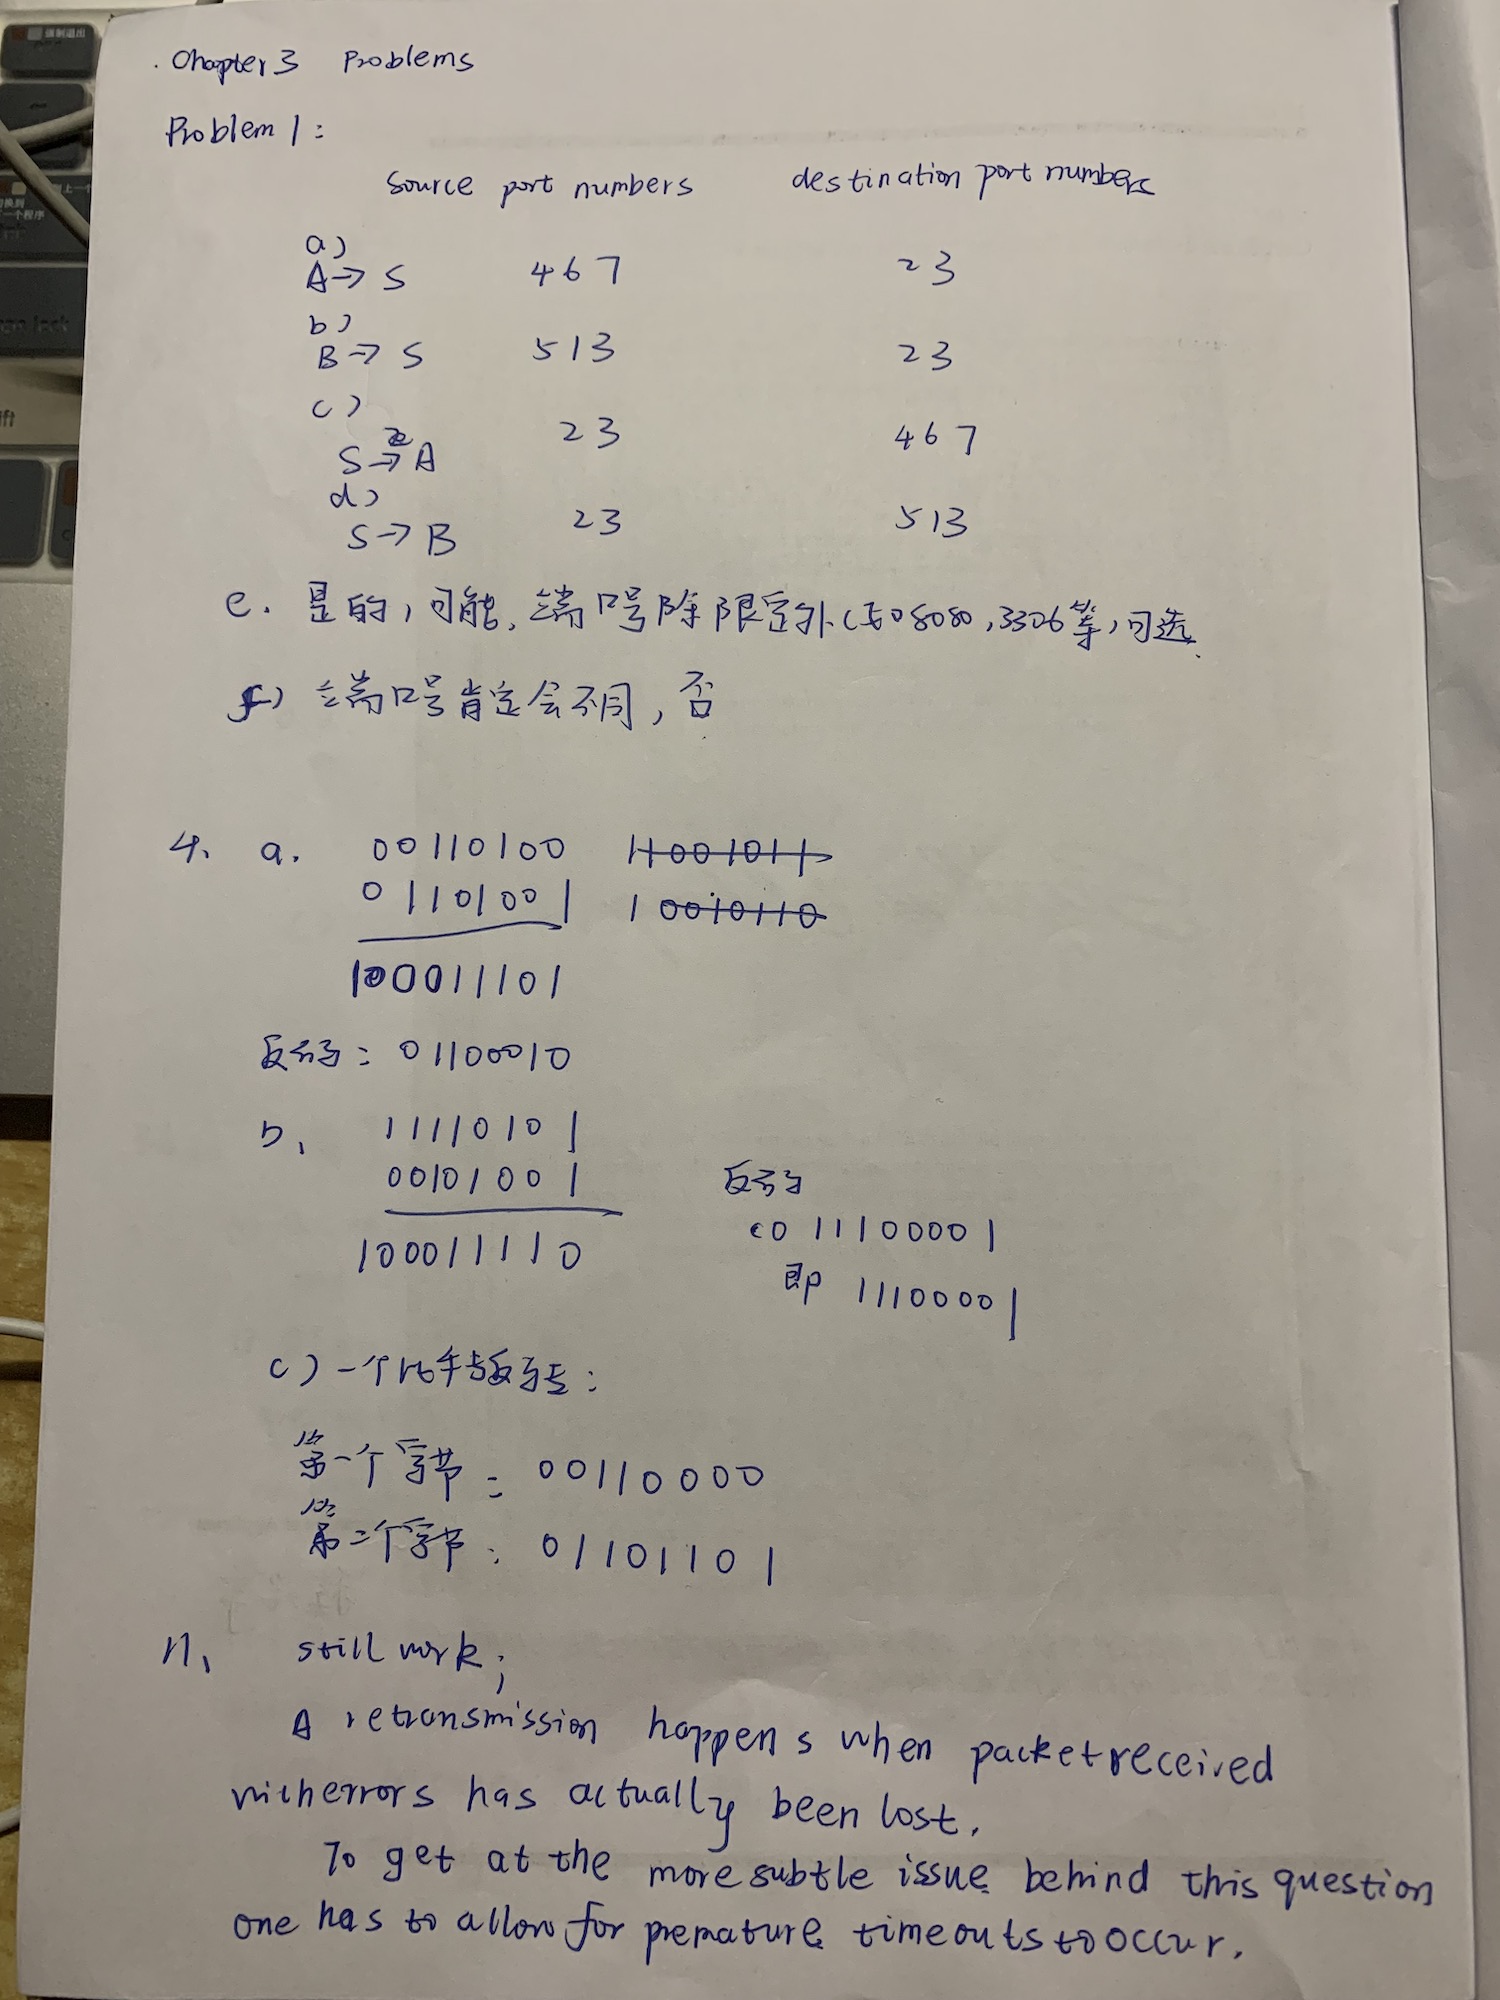 Chapter 3 Problems
Problem 1:
source port numbers destination port numbers
a)
A→S 467 23
b)
B→S 513 23
c)
S→A 23 467
d)
S→B 23 513
e. 是的,可能,端口号除限定外(如8080,3306等)可选.
f) 端口号肯定会不同,否
4. a. 00110100 11001011
01101001 10010110
100011101
反码: 01100010
b、 11110101
00101001 反码
100011110 (0 11100001
即 11100001
c) 一个比特反转:
第一个字节: 00110000
第二个字节: 01101101
11、 still work;
A retransmission happens when packet received
with errors has actually been lost.
To get at the more subtle issue behind this question
one has to allow for premature timeouts to occur.